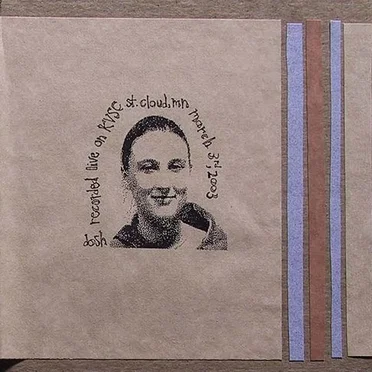 dosh recorded live on KVSC st. cloud, mn march 3rd, 2003